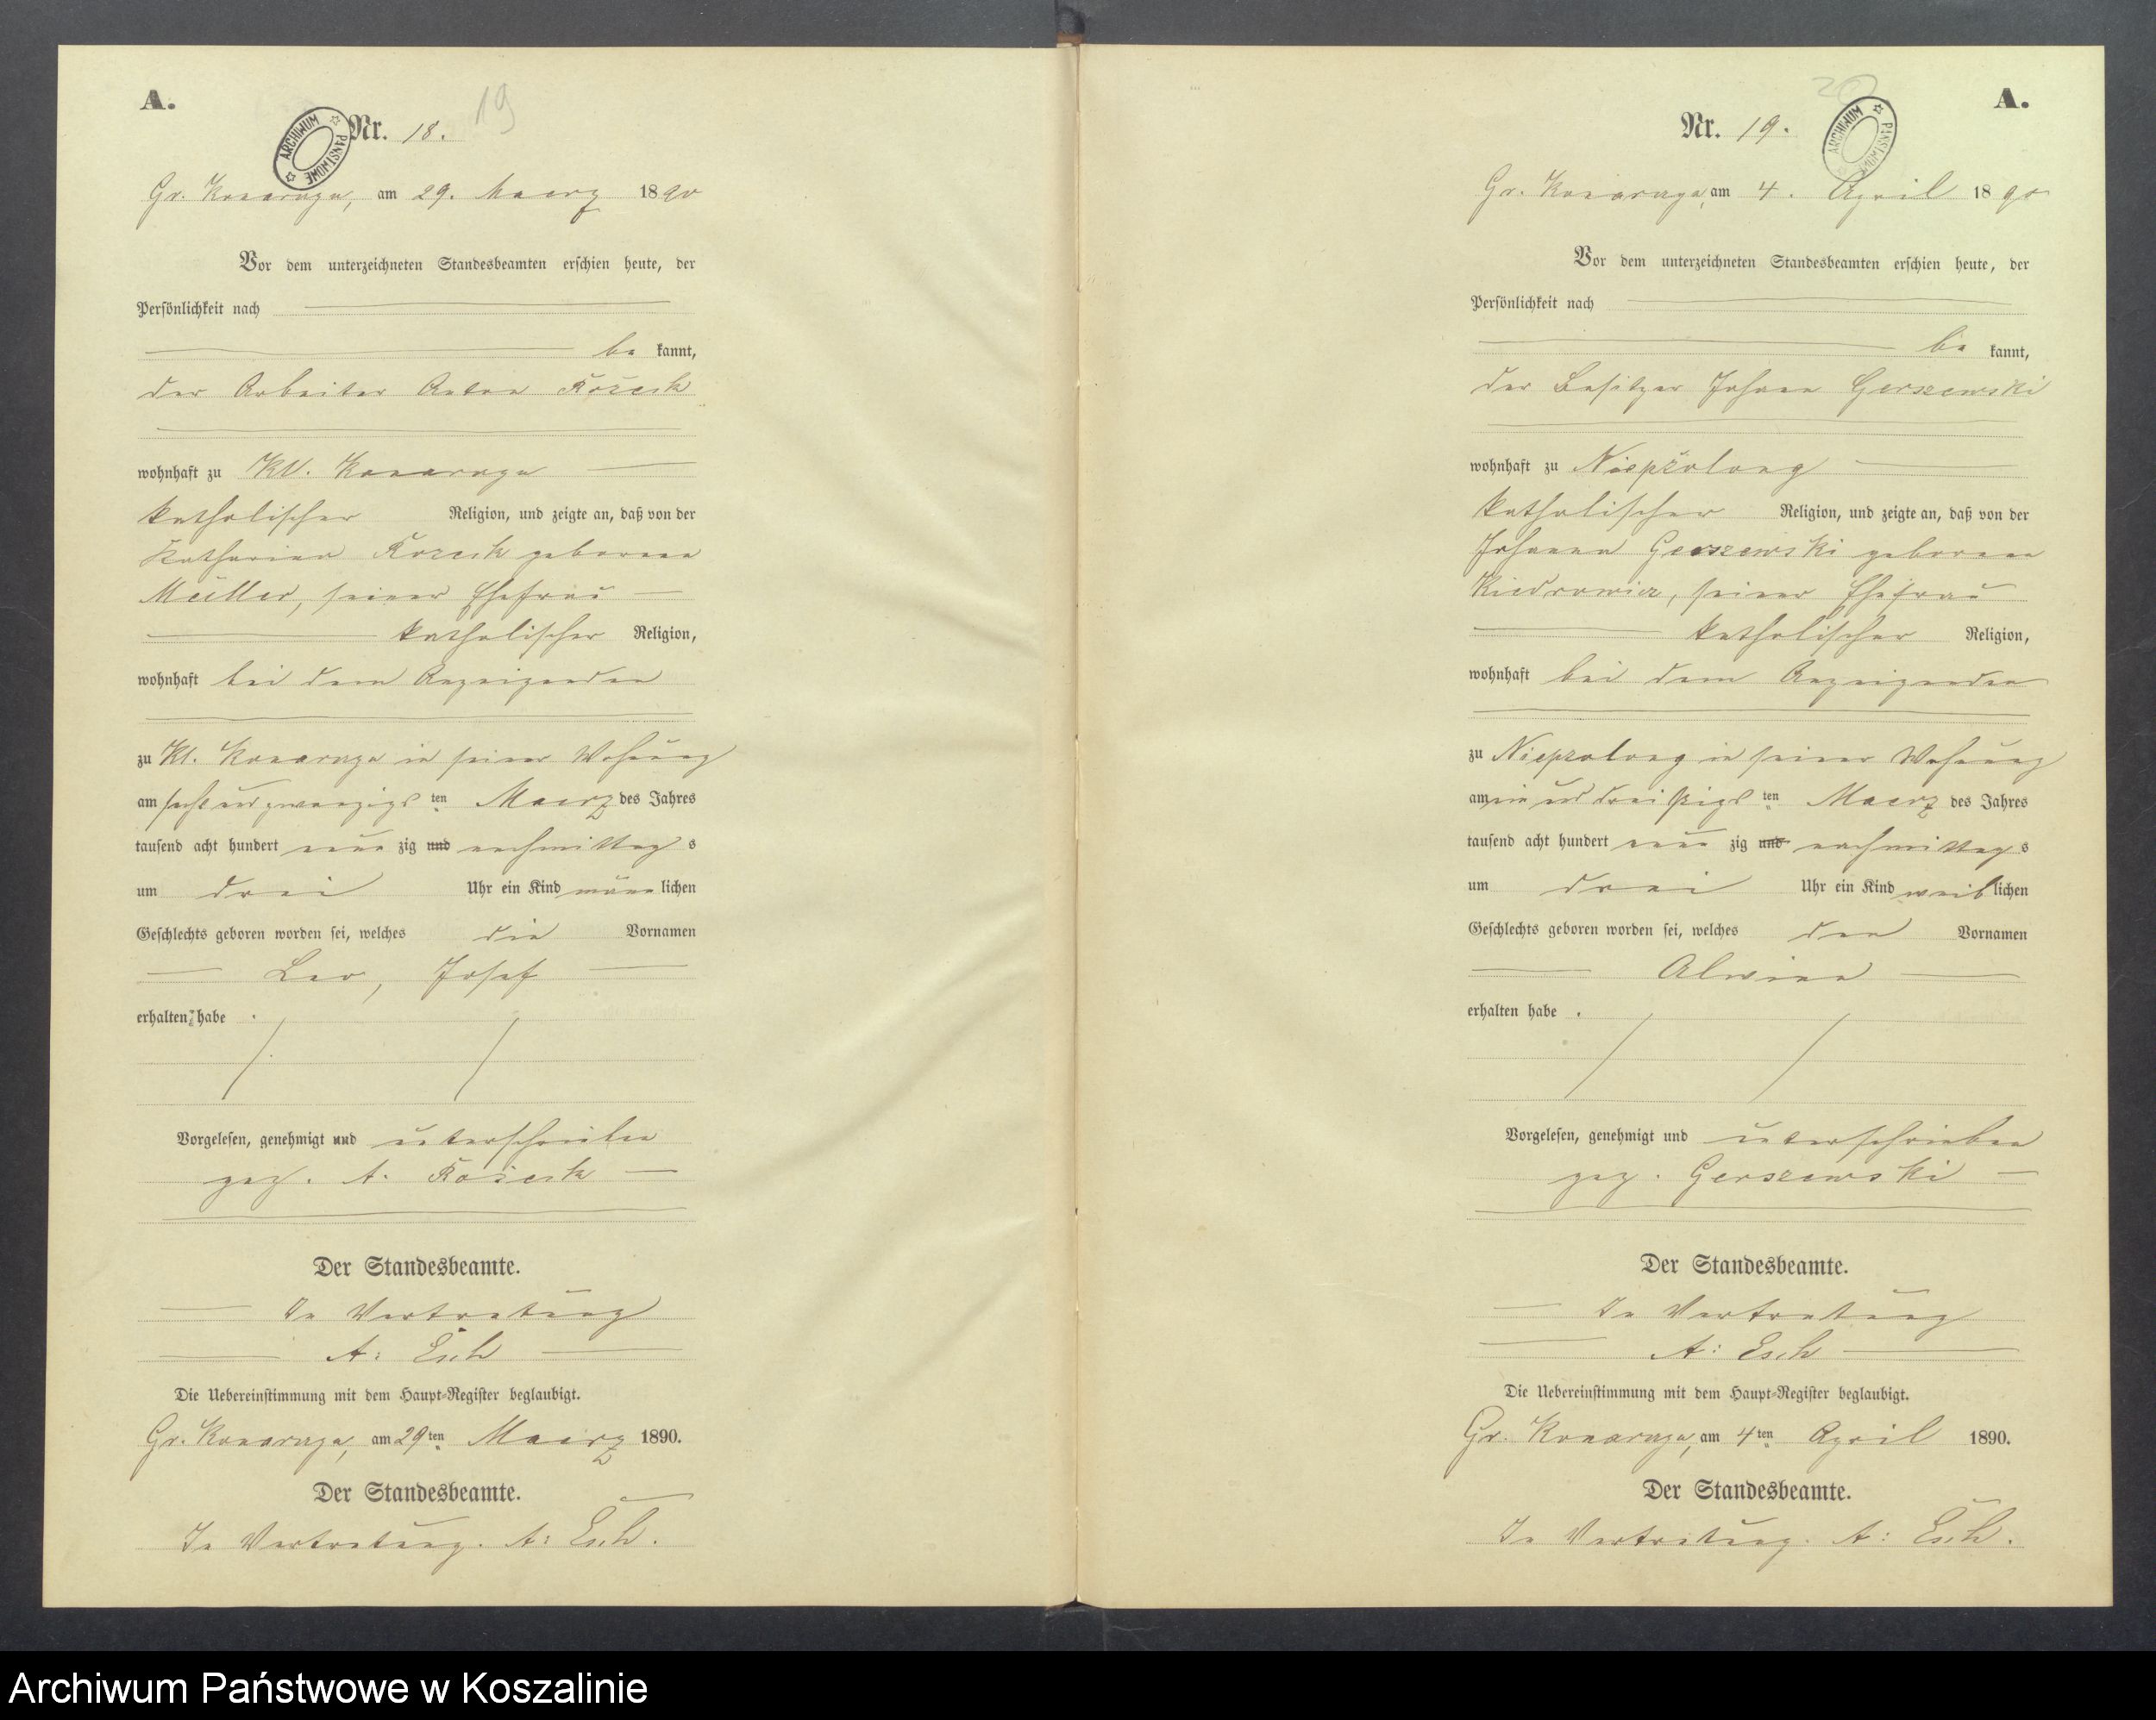 A.
Nr. 18.
19
ARCHIWUM PAŃSTWOWE
Gr. Konarczyn, am 29. Maerz 1890
Vor dem unterzeichneten Standesbeamten erschien heute, der
Persönlichkeit nach
be kannt,
der Arbeiter Anton
wohnhaft zu Kl. Konarczyn
katholischer Religion, und zeigte an, daß von der
Katharina geborene
Müller, seiner Ehefrau
katholischer Religion,
wohnhaft bei dem Anzeigenden
zu Kl. Konarczyn in seiner Wohnung
am sechs und zwanzigsten Maerz des Jahres
tausend acht hundert neun zig und nachmittags
um drei Uhr ein Kind männlichen
Geschlechts geboren worden sei, welches die Vornamen
Leo, Josef
erhalten habe.
Vorgelesen, genehmigt und unterschrieben
gez. A.
Der Standesbeamte.
In Vertretung
A: Esch
Die Uebereinstimmung mit dem Haupt-Register beglaubigt.
Gr. Konarczyn, am 29ten Maerz 1890.
Der Standesbeamte.
In Vertretung. A: Esch.
A.
Nr. 19.
20
ARCHIWUM PAŃSTWOWE
Gr. Konarczyn, am 4. April 1890
Vor dem unterzeichneten Standesbeamten erschien heute, der
Persönlichkeit nach
be kannt,
der Besitzer Johann Gerszewski
wohnhaft zu
katholischer Religion, und zeigte an, daß von der
Johanna Gerszewski geborene
Kiedrowicz, seiner Ehefrau
katholischer Religion,
wohnhaft bei dem Anzeigenden
zu in seiner Wohnung
am ein und dreißigsten Maerz des Jahres
tausend acht hundert neun zig und nachmittags
um drei Uhr ein Kind weiblichen
Geschlechts geboren worden sei, welches den Vornamen
Alwine
erhalten habe.
Vorgelesen, genehmigt und unterschrieben
gez. Gerszewski
Der Standesbeamte.
In Vertretung
A: Esch
Die Uebereinstimmung mit dem Haupt-Register beglaubigt.
Gr. Konarczyn, am 4ten April 1890.
Der Standesbeamte.
In Vertretung. A: Esch.
Archiwum Państwowe w Koszalinie